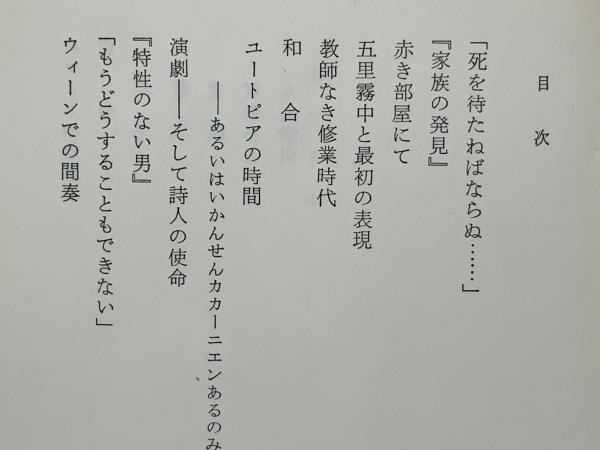 目次
「死を待たねばならぬ……」
『家族の発見』
赤き部屋にて
五里霧中と最初の表現
教師なき修業時代
和合
ユートピアの時間
――あるいはいかんせんカカーニエンあるのみ
演劇――そして詩人の使命
『特性のない男』
「もうどうすることもできない」
ウィーンでの間奏